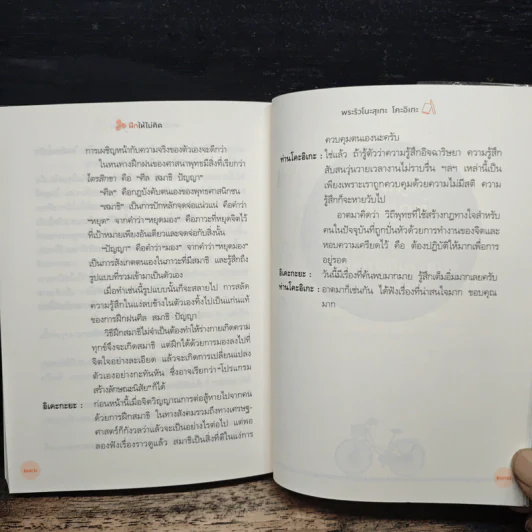 ฝึกให้ไม่คิด
การเผชิญหน้ากับความจริงของตัวเองจะดีกว่า
ในหนทางฝึกฝนของศาสนาพุทธมีสิ่งที่เรียกว่า
ไตรสิกขา คือ “ศีล สมาธิ ปัญญา”
“ศีล” คือกฎบังคับตนเองของพุทธศาสนิกชน
“สมาธิ” เป็นการปักหลักจดจ่อแน่วแน่ คือคำว่า
“หยุด” จากคำว่า“หยุดมอง” คือภาวะที่หยุดจิตไว้
ที่เป้าหมายเพียงอันเดียวและจดจ่อกับสิ่งนั้น
“ปัญญา” คือคำว่า“มอง” จากคำว่า“หยุดมอง”
เป็นการสังเกตตนเองในภาวะที่มีสมาธิ และรู้สึกถึง
รูปแบบที่รวมเข้ามาเป็นตัวเอง
เมื่อทำเช่นนี้รูปแบบนั้นก็จะสลายไป การสลัด
ความรู้สึกในแง่ลบข้างในตัวเองทิ้งไปเป็นแก่นแท้
ของการฝึกฝนศีล สมาธิ ปัญญา
วิธีฝึกสมาธิไม่จำเป็นต้องทำให้ร่างกายเกิดความ
ทุกข์จึงจะเกิดสมาธิ แต่ฝึกได้ด้วยการมองลงไปที่
จิตใจอย่างละเอียด แล้วจะเกิดการเปลี่ยนแปลง
ตัวเองอย่างกะทันหัน ซึ่งอาจเรียกว่า“โปรแกรม
สร้างลักษณะนิสัย”ก็ได้
อิเคะกะยะ : ก่อนหน้านี้เมื่อจิตวิญญาณการต่อสู้หายไปจากตน
ด้วยการฝึกสมาธิ ในทางสังคมรวมถึงทางเศรษฐ-
ศาสตร์ก็กังวลว่าแล้วจะเป็นอย่างไรต่อไป แต่พอ
ลองฟังเรื่องราวดูแล้ว สมาธิเป็นสิ่งที่ดีในแง่การ
พระริวโนะสุเกะ โคะอิเกะ
ควบคุมตนเองนะครับ
ท่านโคะอิเกะ : ใช่แล้ว ถ้ารู้ตัวว่าความรู้สึกอิจฉาริษยา ความรู้สึก
สับสนวุ่นวายเวลางานไม่ราบรื่น ฯลฯ เหล่านี้เป็น
เพียงเพราะเราถูกควบคุมด้วยความไม่มีสติ ความ
รู้สึกก็จะหายวับไป
อาตมาคิดว่า วิถีพุทธที่ใช้สร้างกฎทางใจสำหรับ
คนในปัจจุบันที่ถูกปั่นหัวด้วยการทำงานของจิตและ
หอบความเครียดไว้ คือ ต้องปฏิบัติให้มากเพื่อการ
อยู่รอด
อิเคะกะยะ : วันนี้มีเรื่องที่ค้นพบมากมาย รู้สึกเต็มอิ่มมากเลยครับ
ท่านโคะอิเกะ : อาตมาก็เช่นกัน ได้ฟังเรื่องที่น่าสนใจมาก ขอบคุณ
มาก